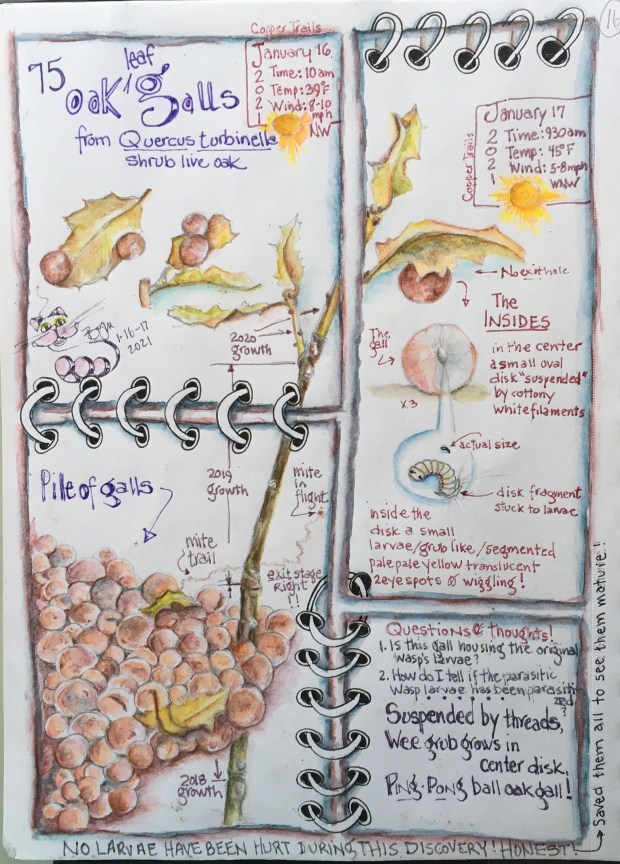 16
Copper Trails
January 16
2021
Time: 10am
Temp: 39°F
Wind: 8-10 mph
NW
75
oak leaf galls
from Quercus turbinella
shrub live oak
1-16-17
2021
2020
growth
2019
growth
mite
in
flight
mite
trail
exit stage
right
!!
Pile of galls
2018
growth
Copper Trails
January 17
2021
Time: 930am
Temp: 45°F
Wind: 5-8mph
WNW
No exit hole
The
INSIDES
The
gall
x3
in the center
a small oval
disk "suspended"
by cottony
white filaments
actual size
disk fragment
stuck to larvae
inside the
disk a small
larvae/grub like/segmented
pale pale yellow translucent
2 eye spots & wiggling!
Questions & thoughts!
1. Is this gall housing the original
wasp's larvae?
2. How do I tell if the parasitic
wasp larvae has been parasiti
zed
?
Suspended by threads,
Wee grub grows in
center disk.
Ping-Pong ball oak gall!
NO LARVAE HAVE BEEN HURT DURING THIS DISCOVERY! HONEST!
Saved them all to see them mature!!